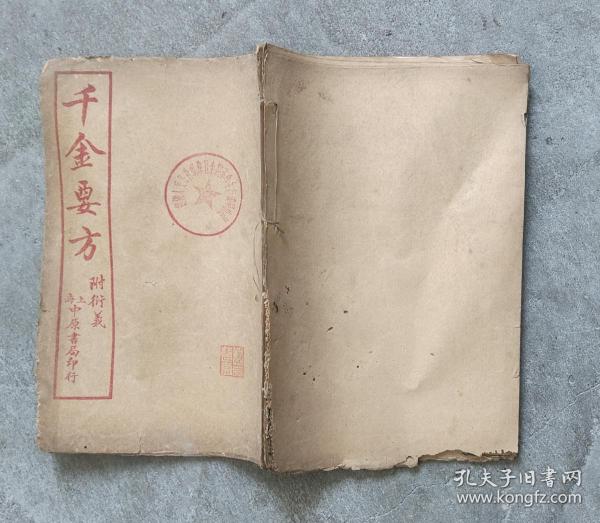 千金要方
附衍義
上海中原書局印行
孔夫子旧书网
www.kongfz.com